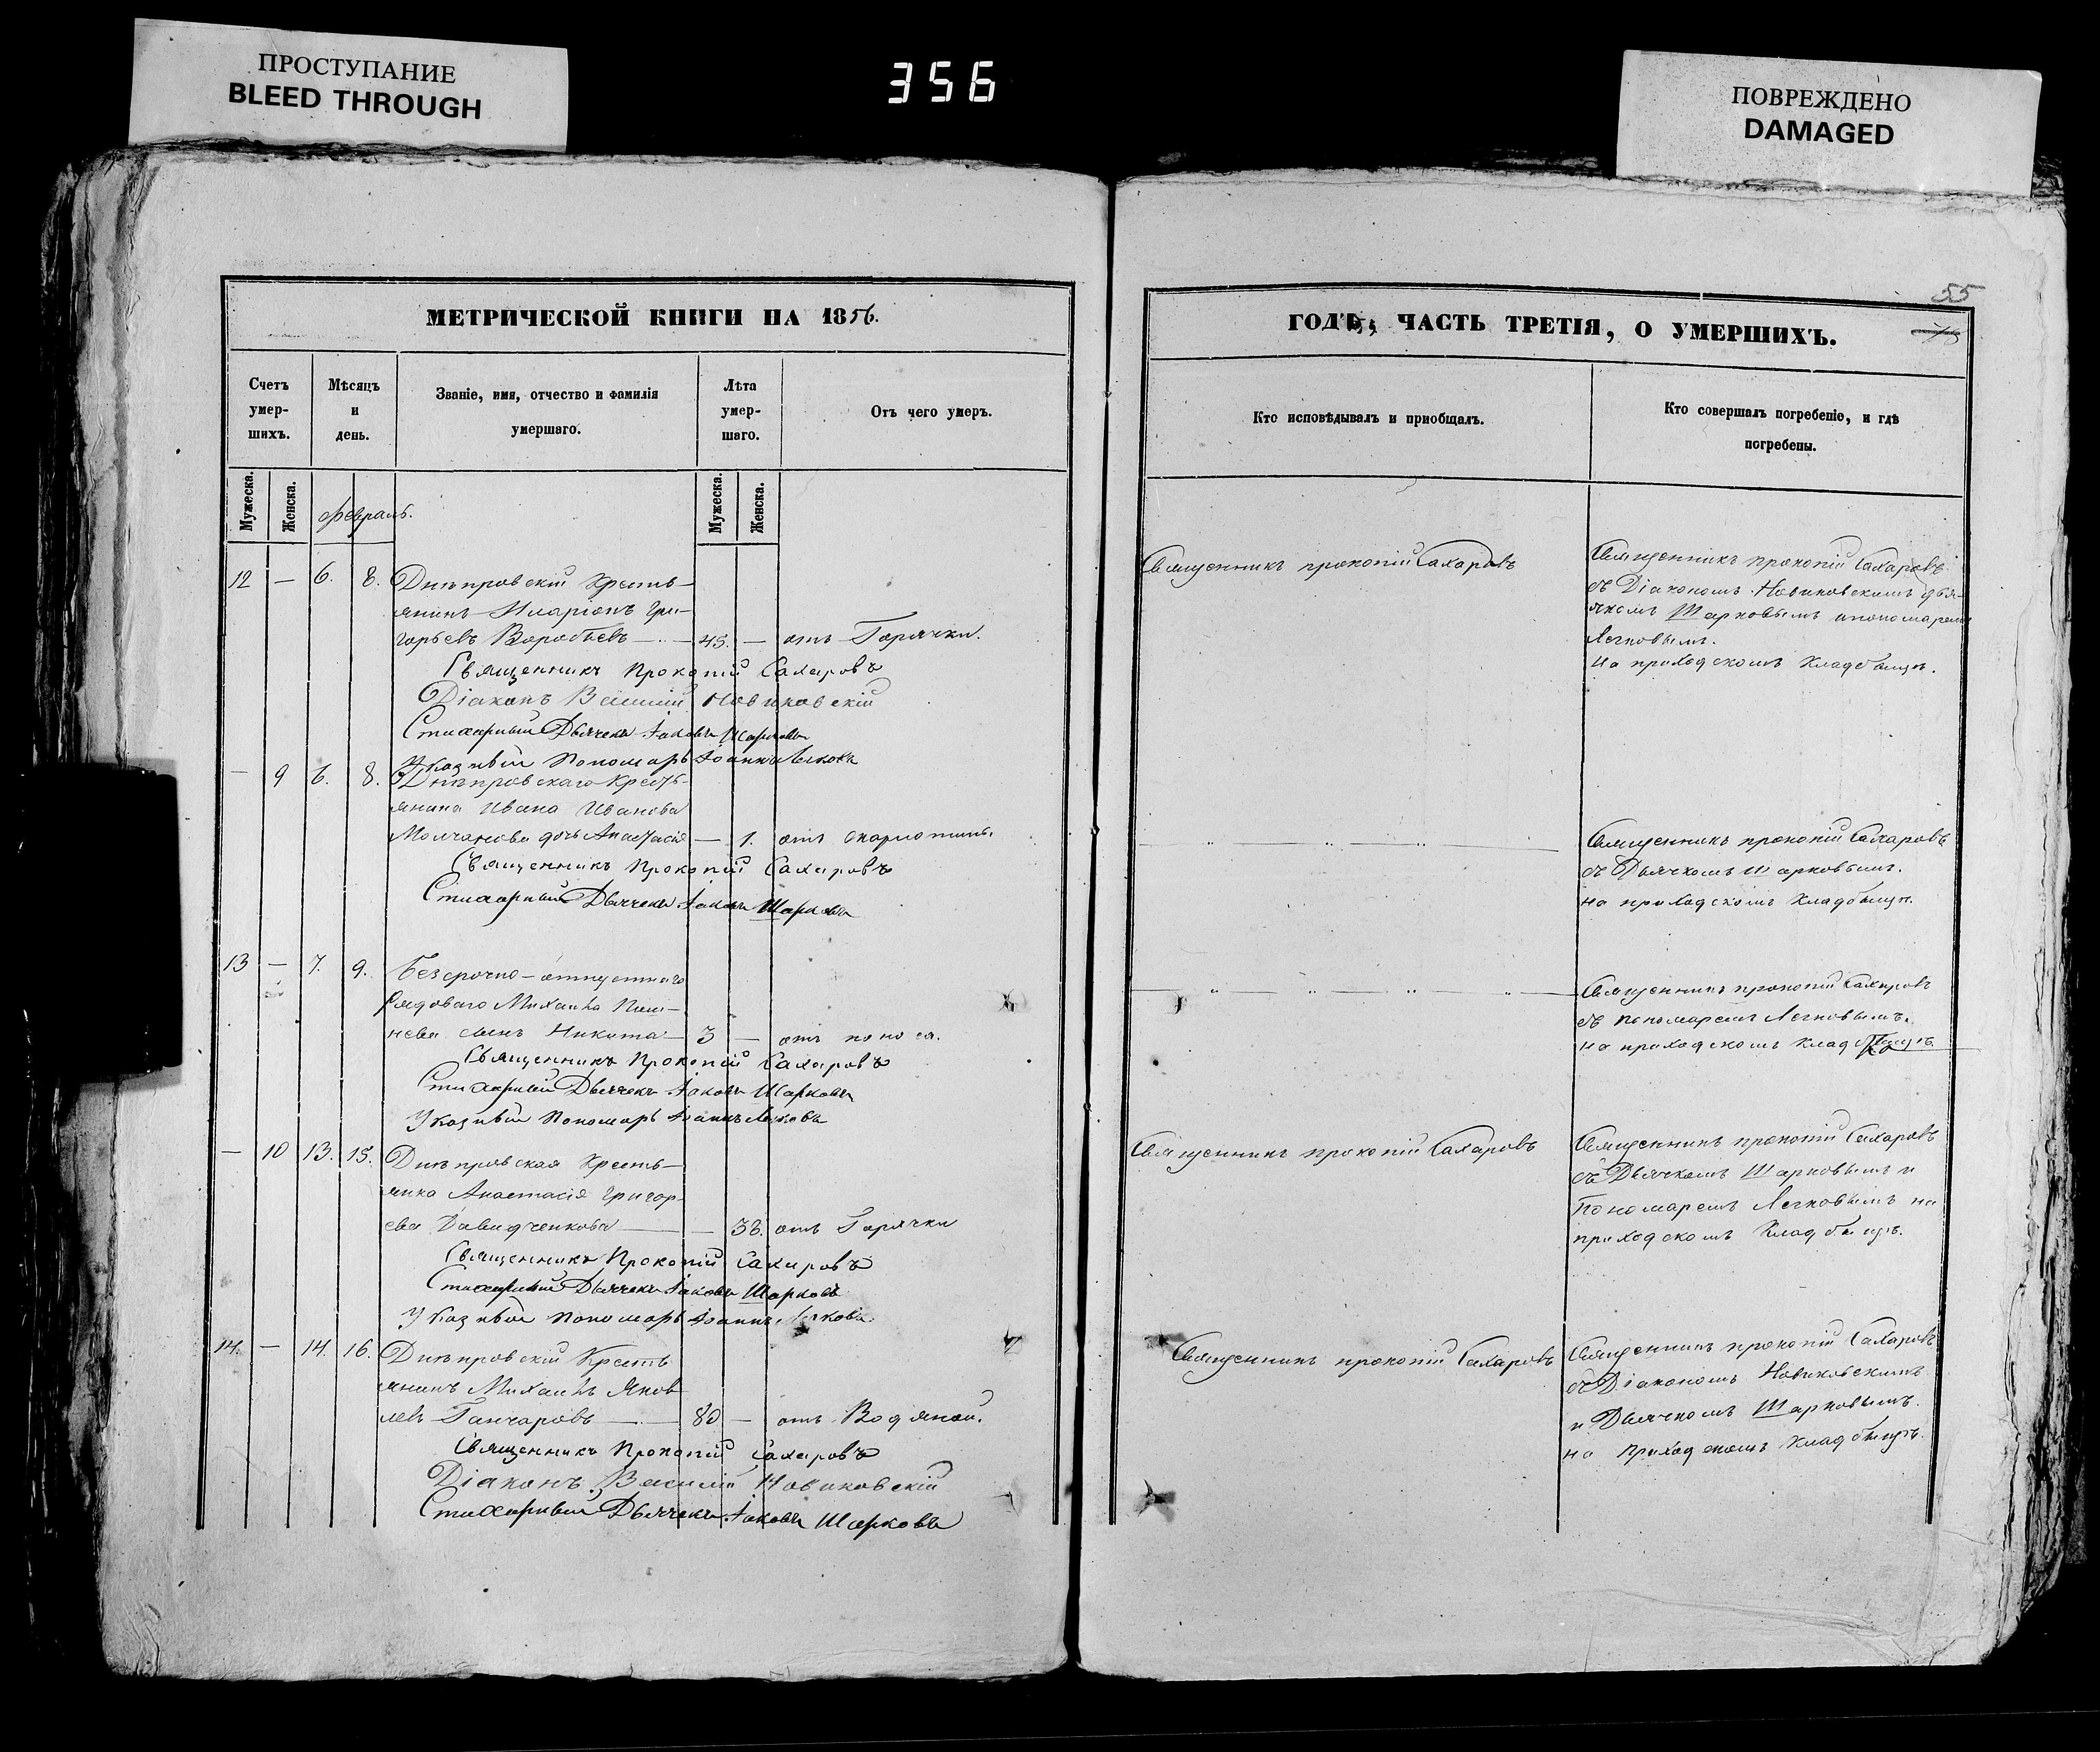 ПРОСТУПАНИЕ
BLEED THROUGH
356
ПОВРЕЖДЕНО
DAMAGED
МЕТРИЧЕСКОЙ КНИГИ НА 1856.
Счетъ
умер-
шихъ.
Мѣсяцъ
и
день.
Званіе, имя, отчество и фамилія
умершаго.
Лѣта
умер-
шаго.
Отъ чего умеръ.
Мужеска.
Женска.
Февраль.
Мужеска.
Женска.
12 — 6. 8. Днѣпровскій Кресть-
янинъ Иларіонъ Гри-
горьевъ Воробьевъ — 45. — отъ Горячки.
Священникъ Прокопій Сахаровъ
Діаконъ Василій Новиковскій
Стихарный Дьячекъ Іаковъ Шарковъ
Указный Пономарь Іоаннъ Легковъ
— 9 6. 8. Днѣпровскаго Кресть-
янина Ивана Иванова
Молчанова дочь Анастасія — 1. отъ скарлотины.
Священникъ Прокопій Сахаровъ
Стихарный Дьячекъ Іаковъ Шарковъ
13 — 7. 9. Безсрочно-отпускнаго
Рядоваго Михаила
сынъ Никита — 3 — отъ поноса.
Священникъ Прокопій Сахаровъ
Стихарный Дьячекъ Іаковъ Шарковъ
Указный Пономарь Іоаннъ Легковъ
— 10 13. 15. Днѣпровская Кресть-
янка Анастасія Григор-
ева Давидченкова — 38. отъ Горячки
Священникъ Прокопій Сахаровъ
Стихарный Дьячекъ Іаковъ Шарковъ
Указный Пономарь Іоаннъ Легковъ
14. — 14. 16. Днѣпровскій Кресть
янинъ Михаилъ Яков
левъ Ганчаровъ — 80 — отъ Водяной.
Священникъ Прокопій Сахаровъ
Діаконъ Василій Новиковскій
Стихарный Дьячекъ Іаковъ Шарковъ
55
ГОДЪ, ЧАСТЬ ТРЕТІЯ, О УМЕРШИХЪ.
Кто исповѣдывалъ и пріобщалъ.
Кто совершалъ погребеніе, и гдѣ
погребены.
Священникъ прокопій Сахаровъ
Священникъ прокопій Сахаровъ
съ Діакономъ Новиковскимъ дья-
чкомъ Шарковымъ и пономаремъ
Легковымъ.
на приходскомъ Кладбищѣ.
Священникъ прокопій Сахаровъ
съ Дьячкомъ Шарковымъ.
на приходскомъ Кладбищѣ.
Священникъ прокопій Сахаровъ
съ пономаремъ Легковымъ.
на приходскомъ Кладбищѣ
Священникъ прокопій Сахаровъ
Священникъ прокопій Сахаровъ
съ Дьячкомъ Шарковымъ и
Пономаремъ Легковымъ на
приходскомъ Кладбищѣ.
Священникъ прокопій Сахаровъ
Священникъ прокопій Сахаровъ
съ Діакономъ Новиковскимъ
и Дьячкомъ Шарковымъ.
на Приходскомъ Кладбищѣ.